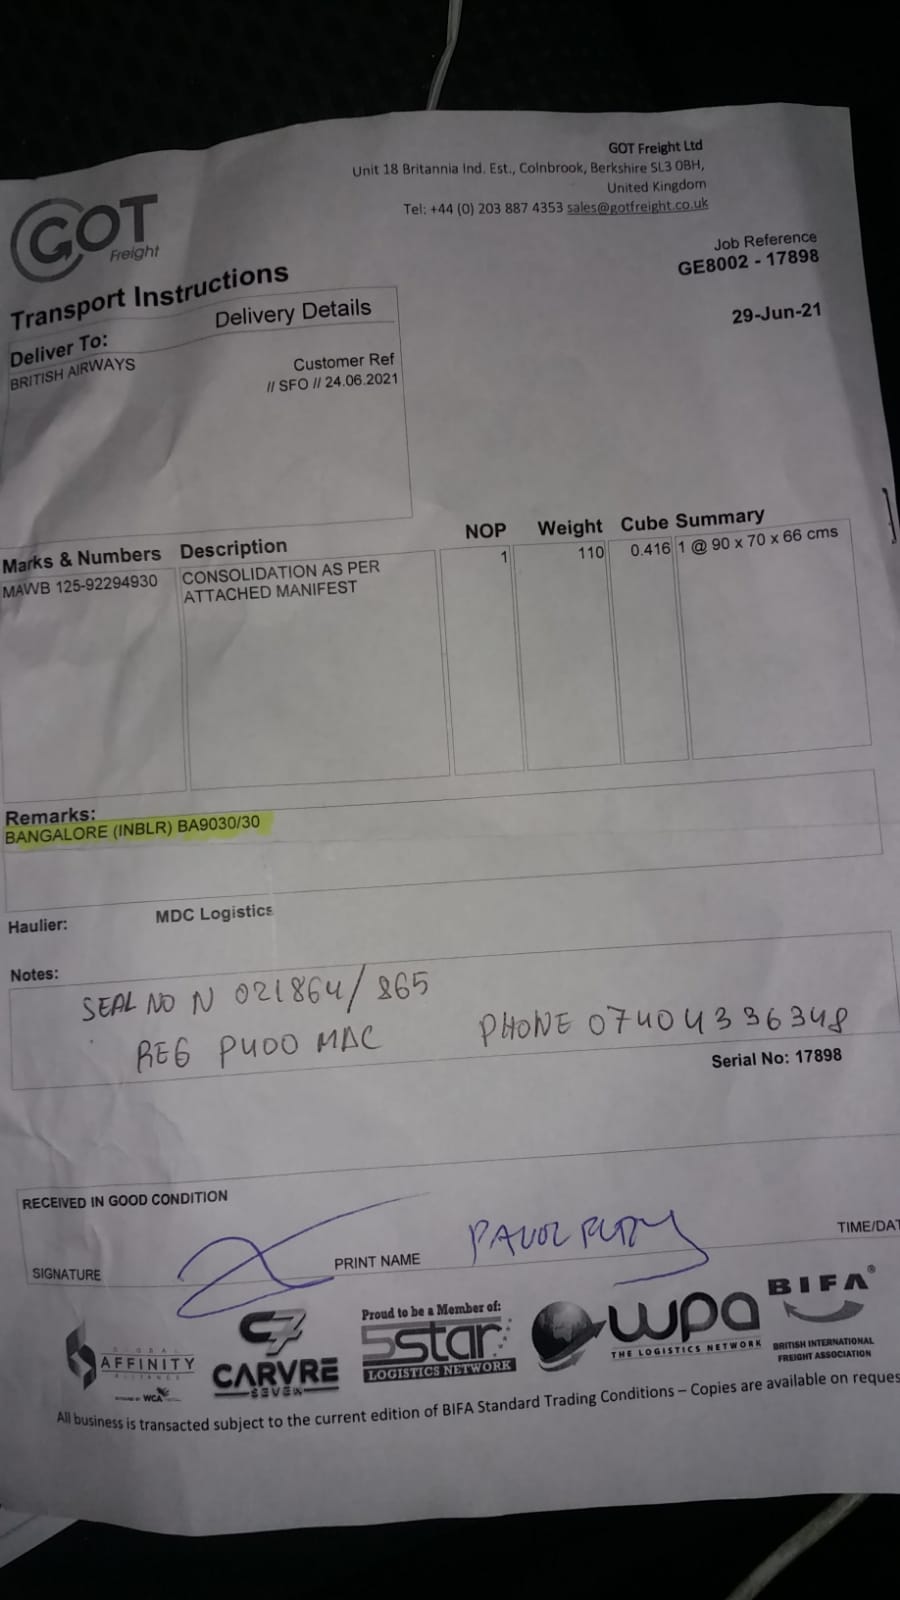 GOT Freight Ltd
Unit 18 Britannia Ind. Est., Colnbrook, Berkshire SL3 0BH,
United Kingdom
Tel: +44 (0) 203 887 4353 sales@gotfreight.co.uk
GOT
Freight
Job Reference
GE8002 - 17898
29-Jun-21
Transport Instructions
Delivery Details
Deliver To:
BRITISH AIRWAYS
Customer Ref
// SFO // 24.06.2021
Marks & Numbers Description NOP Weight Cube Summary
MAWB 125-92294930 CONSOLIDATION AS PER 1 110 0.416 1 @ 90 x 70 x 66 cms
ATTACHED MANIFEST
Remarks:
BANGALORE (INBLR) BA9030/30
Haulier: MDC Logistics
Notes:
SEAL NO N 021864/865
REG P400 MAC PHONE 07404336348
Serial No: 17898
RECEIVED IN GOOD CONDITION
SIGNATURE PRINT NAME PAVOL TIME/DAT
GLOBAL
AFFINITY
ALLIANCE
WCA
C7
CARVRE
SEVEN
Proud to be a Member of:
5star
LOGISTICS NETWORK
wpa
THE LOGISTICS NETWORK
BIFA®
BRITISH INTERNATIONAL
FREIGHT ASSOCIATION
All business is transacted subject to the current edition of BIFA Standard Trading Conditions – Copies are available on reques